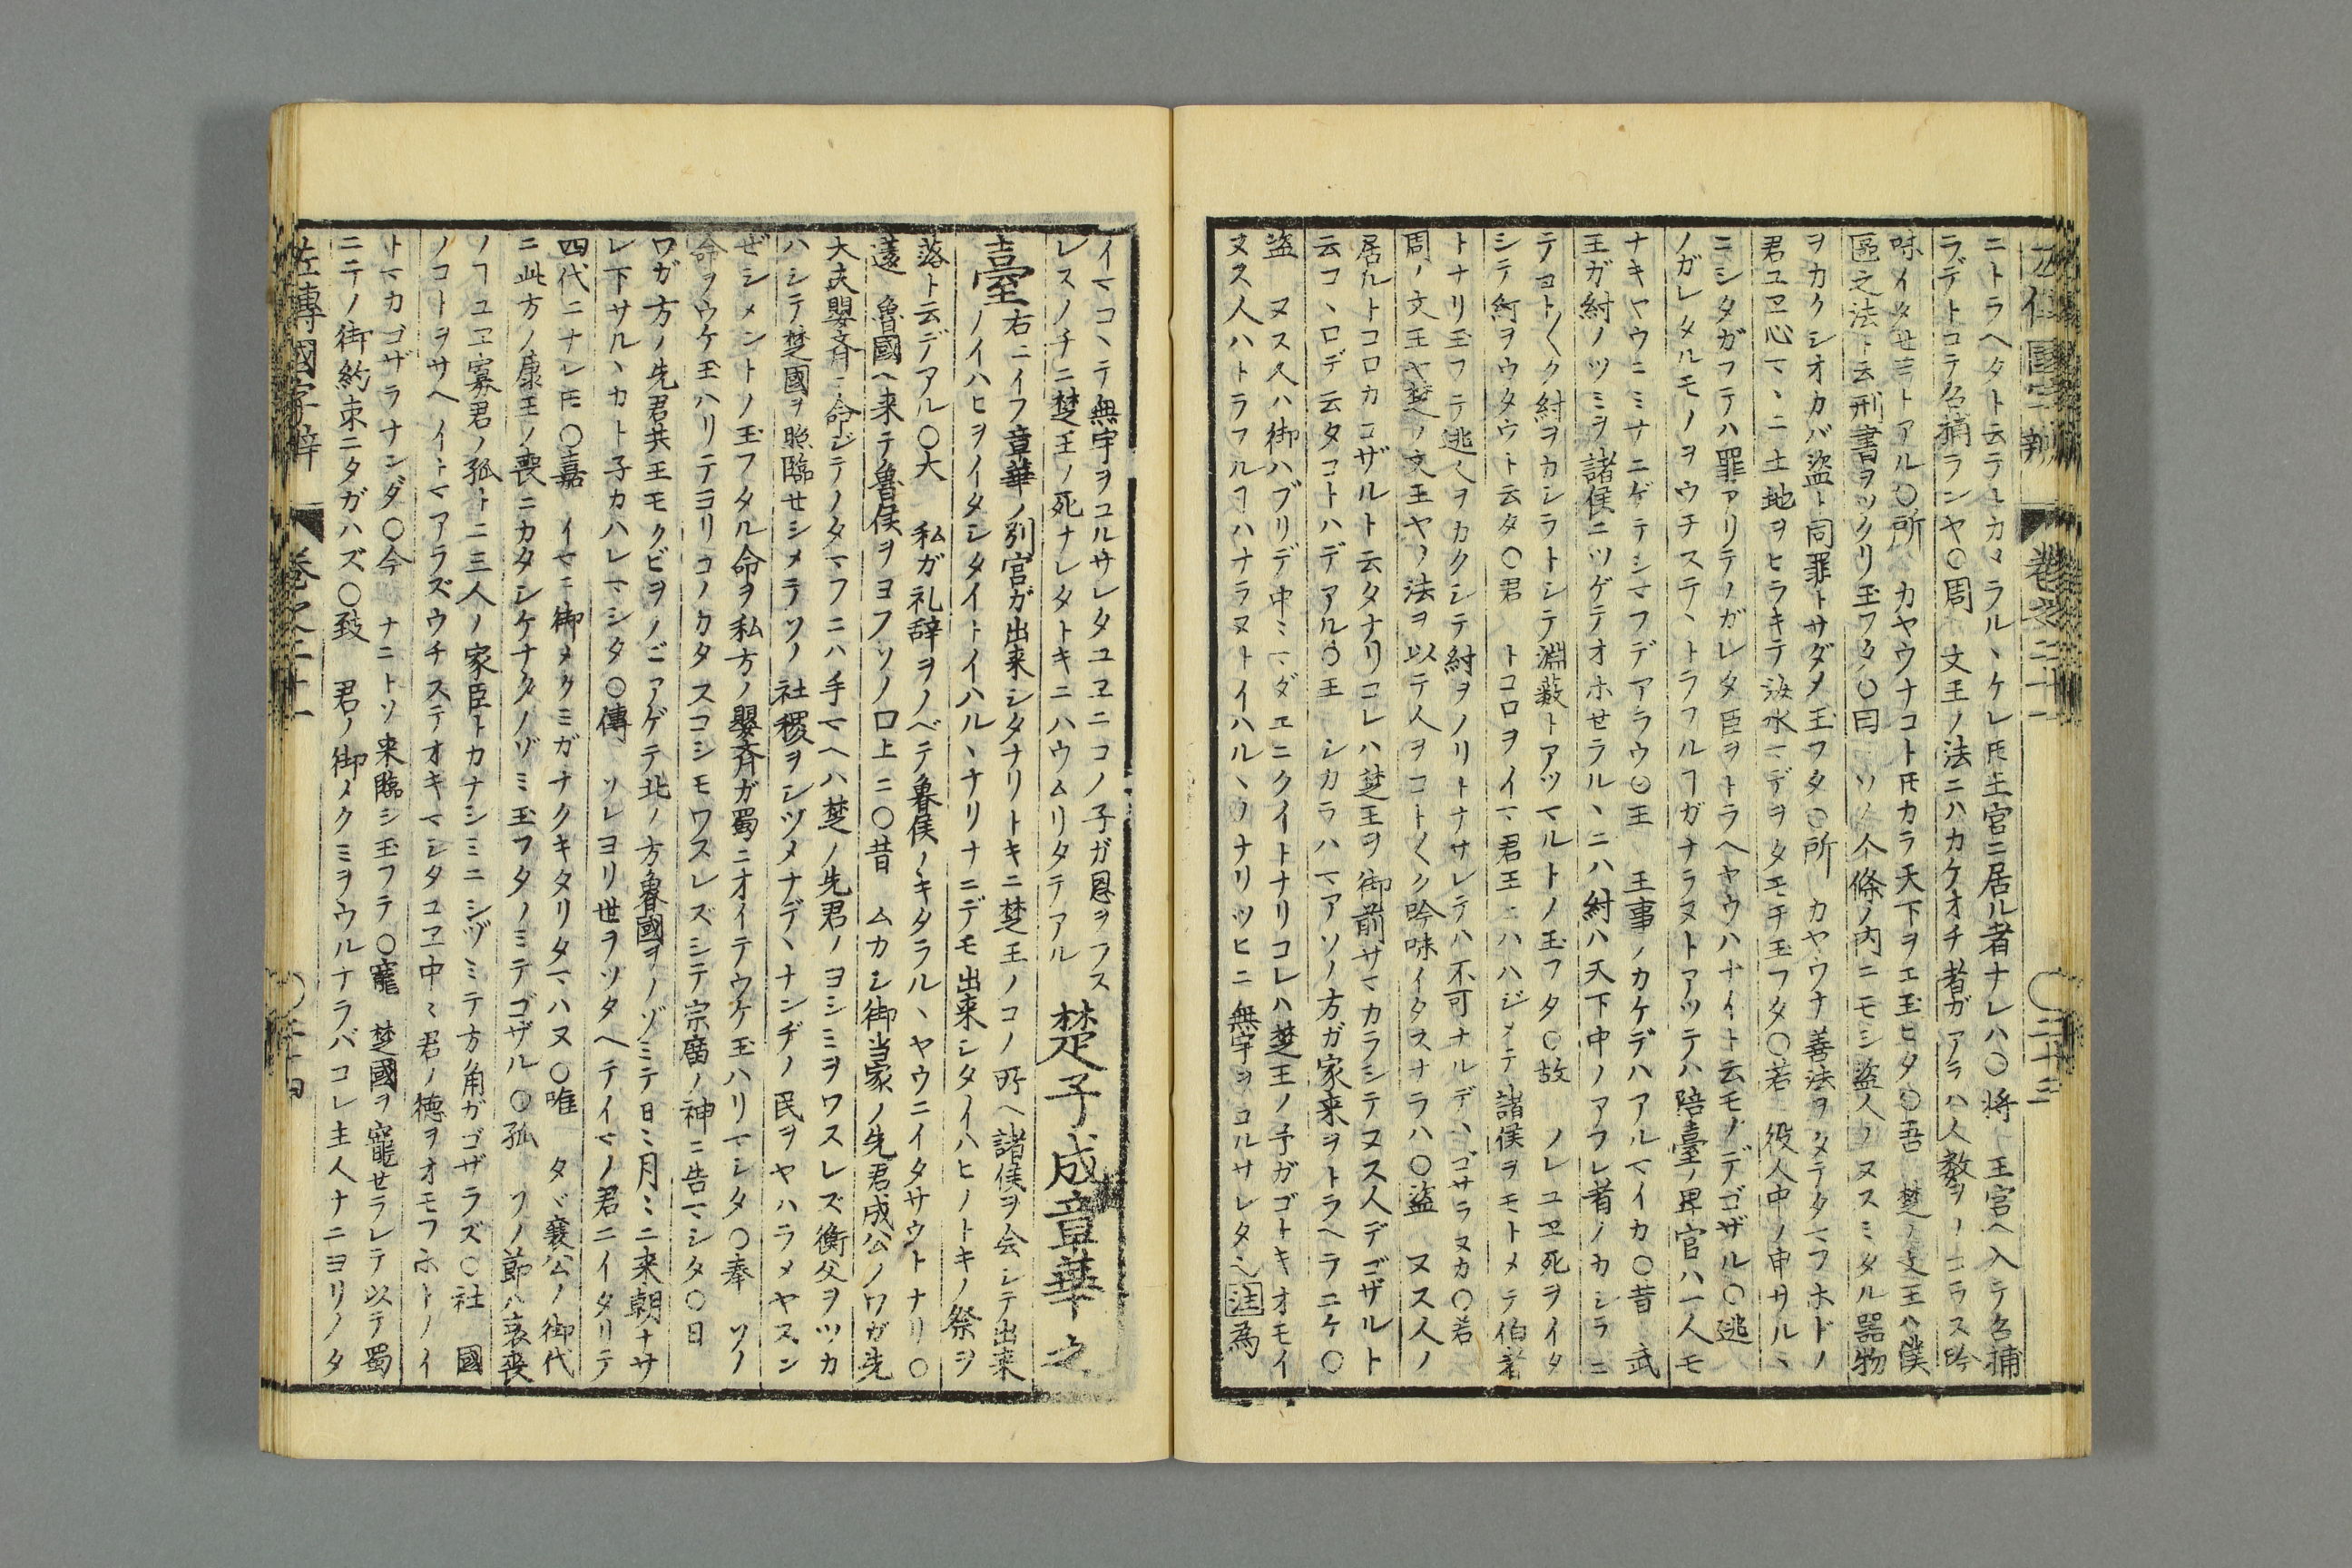 ニトラヘタト云テモカマラル丶ケレ𪜈王宮ニ居ル者ナレハ〇将 王宮ヘ入テ召捕
ラデトコテ召捕ランヤ〇周 文王ノ法ニハカケオチ者ガアラハ人数ヲ コラス吟
味イタセヨトアル〇所 カヤウナコト𪜈カラ天下ヲエ玉ヒタ〇吾 楚ノ文王ハ僕
區之法ト云刑書ヲツクリ玉フタ〇曰 ソノ个條ノ内ニモシ盗人ノヌスミタル器物
ヲカクシオカバ盗ト同罪トサダメ玉フタ〇所 カヤウナ善法ヲタテタマフホドノ
君ユヱ心マ丶ニ土地ヲヒラキテ汝水マデヲタモチ玉フタ〇若 役人中ノ申サル丶
ニシタガフテハ罪アリテノガレタ臣ヲトラヘヤウハナイト云モノデゴザル〇逃
ノガレタルモノヲウチステ丶トラフルヿガナラヌトアツテハ陪臺ノ卑官ハ一人モ
ナキヤウニミナニゲテシマフデアラウ〇王 王事ノカケデハアルマイカ〇昔 武
王ガ紂ノツミヲ諸侯ニツゲテオホセラル丶ニハ紂ハ天下中ノアフレ者ノカシラニ
テヨト〱ク紂ヲカシラトシテ淵藪トアツマルトノ玉フタ〇故 ソレユヱ死ヲイタ
シテ紂ヲウタウト云タ〇君 トコロヲイマ君王ニハハジメテ諸侯ヲモトメテ伯者
トナリ玉フテ逃人ヲカクシテ紂ヲノリトナサレテハ不可ナルデハゴザラヌカ〇若
周ノ文王ヤ楚ノ文王ヤノ法ヲ以テ人ヲコト〱ク吟味イタスナラハ〇盗 ヌス人ノ
居ルトコロカコザルト云タナリコレハ楚王ヲ御前サマカラシテヌス人デゴザルト
云コ丶ロデ云タコトハデアル〇王 シカラハマアソノ方ガ家来ヲトラヘラニケ〇
盗 ヌス人ハ御ハブリデ中ミマダエニクイトナリコレハ楚王ノ子ガゴトキオモイ
ヌス人ハトラフルヿハナラヌトイハル丶ノナリツヒニ無宇ヲユルサレタヘ注為
イマコ丶テ無宇ヲユルサレタユヱニコノ子ガ恩ヲフス
レスノチニ楚王ノ死ナレタトキニハウムリタテアル 楚子成章華之
臺右ニイフ章華ノ別宮ガ出来シタナリトキニ楚王ノコノ所ヘ諸侯ヲ会シテ出来
ノイハヒヲイタシタイトイハル丶ナリナニデモ出来シタイハヒノトキノ祭ヲ
落ト云デアル〇大 私ガ礼辞ヲノベテ魯侯ノキタラル丶ヤウニイタサウトナリ〇
薳 魯國ヘ来テ魯侯ヲヨフソノ口上ニ〇昔 ムカシ御当家ノ先君成公ノワガ先
大夫嬰斉ニ命ジテノタマフニハ手マヘハ楚ノ先君ノヨシミヲワスレズ衡父ヲツカ
ハシテ楚國ヲ照臨セシメテソノ社稷ヲシヅメナデ丶ナンヂノ民ヲヤハラメヤスン
ゼシメントノ玉フタル命ヲ私方ノ嬰斉ガ蜀ニオイテウケ玉ハリマシタ〇奉 ソノ
命ヲウケ玉ハリテヨリコノカタスコシモワスレズシテ宗廟ノ神ニ告マシタ〇日
ワガ方ノ先君共王モクビヲノゴアゲテ北ノ方魯國ヲノゾミテ日ミ月ミニ来朝ナサ
レ下サル丶カト子カハレマシタ〇傳 ソレヨリ世ヲツタヘテイマノ君ニイタリテ
四代ニナレ𪜈〇嘉 イマニ御メクミガナクキタリタマハヌ〇唯 タヾ襄公ノ御代
ニ此方ノ康王ノ喪ニカタシケナクノゾミ玉フタノミテゴザル〇孤 ソノ節ハ哀喪
ノヿユヱ寡君ノ孤トニ三人ノ家臣トカナシミニシヅミテ方角ガゴザラズ〇社 國
ノコトヲサヘイトマアラズウチステオキマシタユヱ中ミ君ノ徳ヲオモフホトノイ
トマカゴザラナンダ〇今 ナニトソ来臨シ玉フテ〇寵 楚國ヲ寵セラレテ以テ蜀
ニテノ御約束ニタガハズ〇致 君ノ御メクミヲウルナラバコレ主人ナニヨリノタ
左傳國字辯 巻之二十一